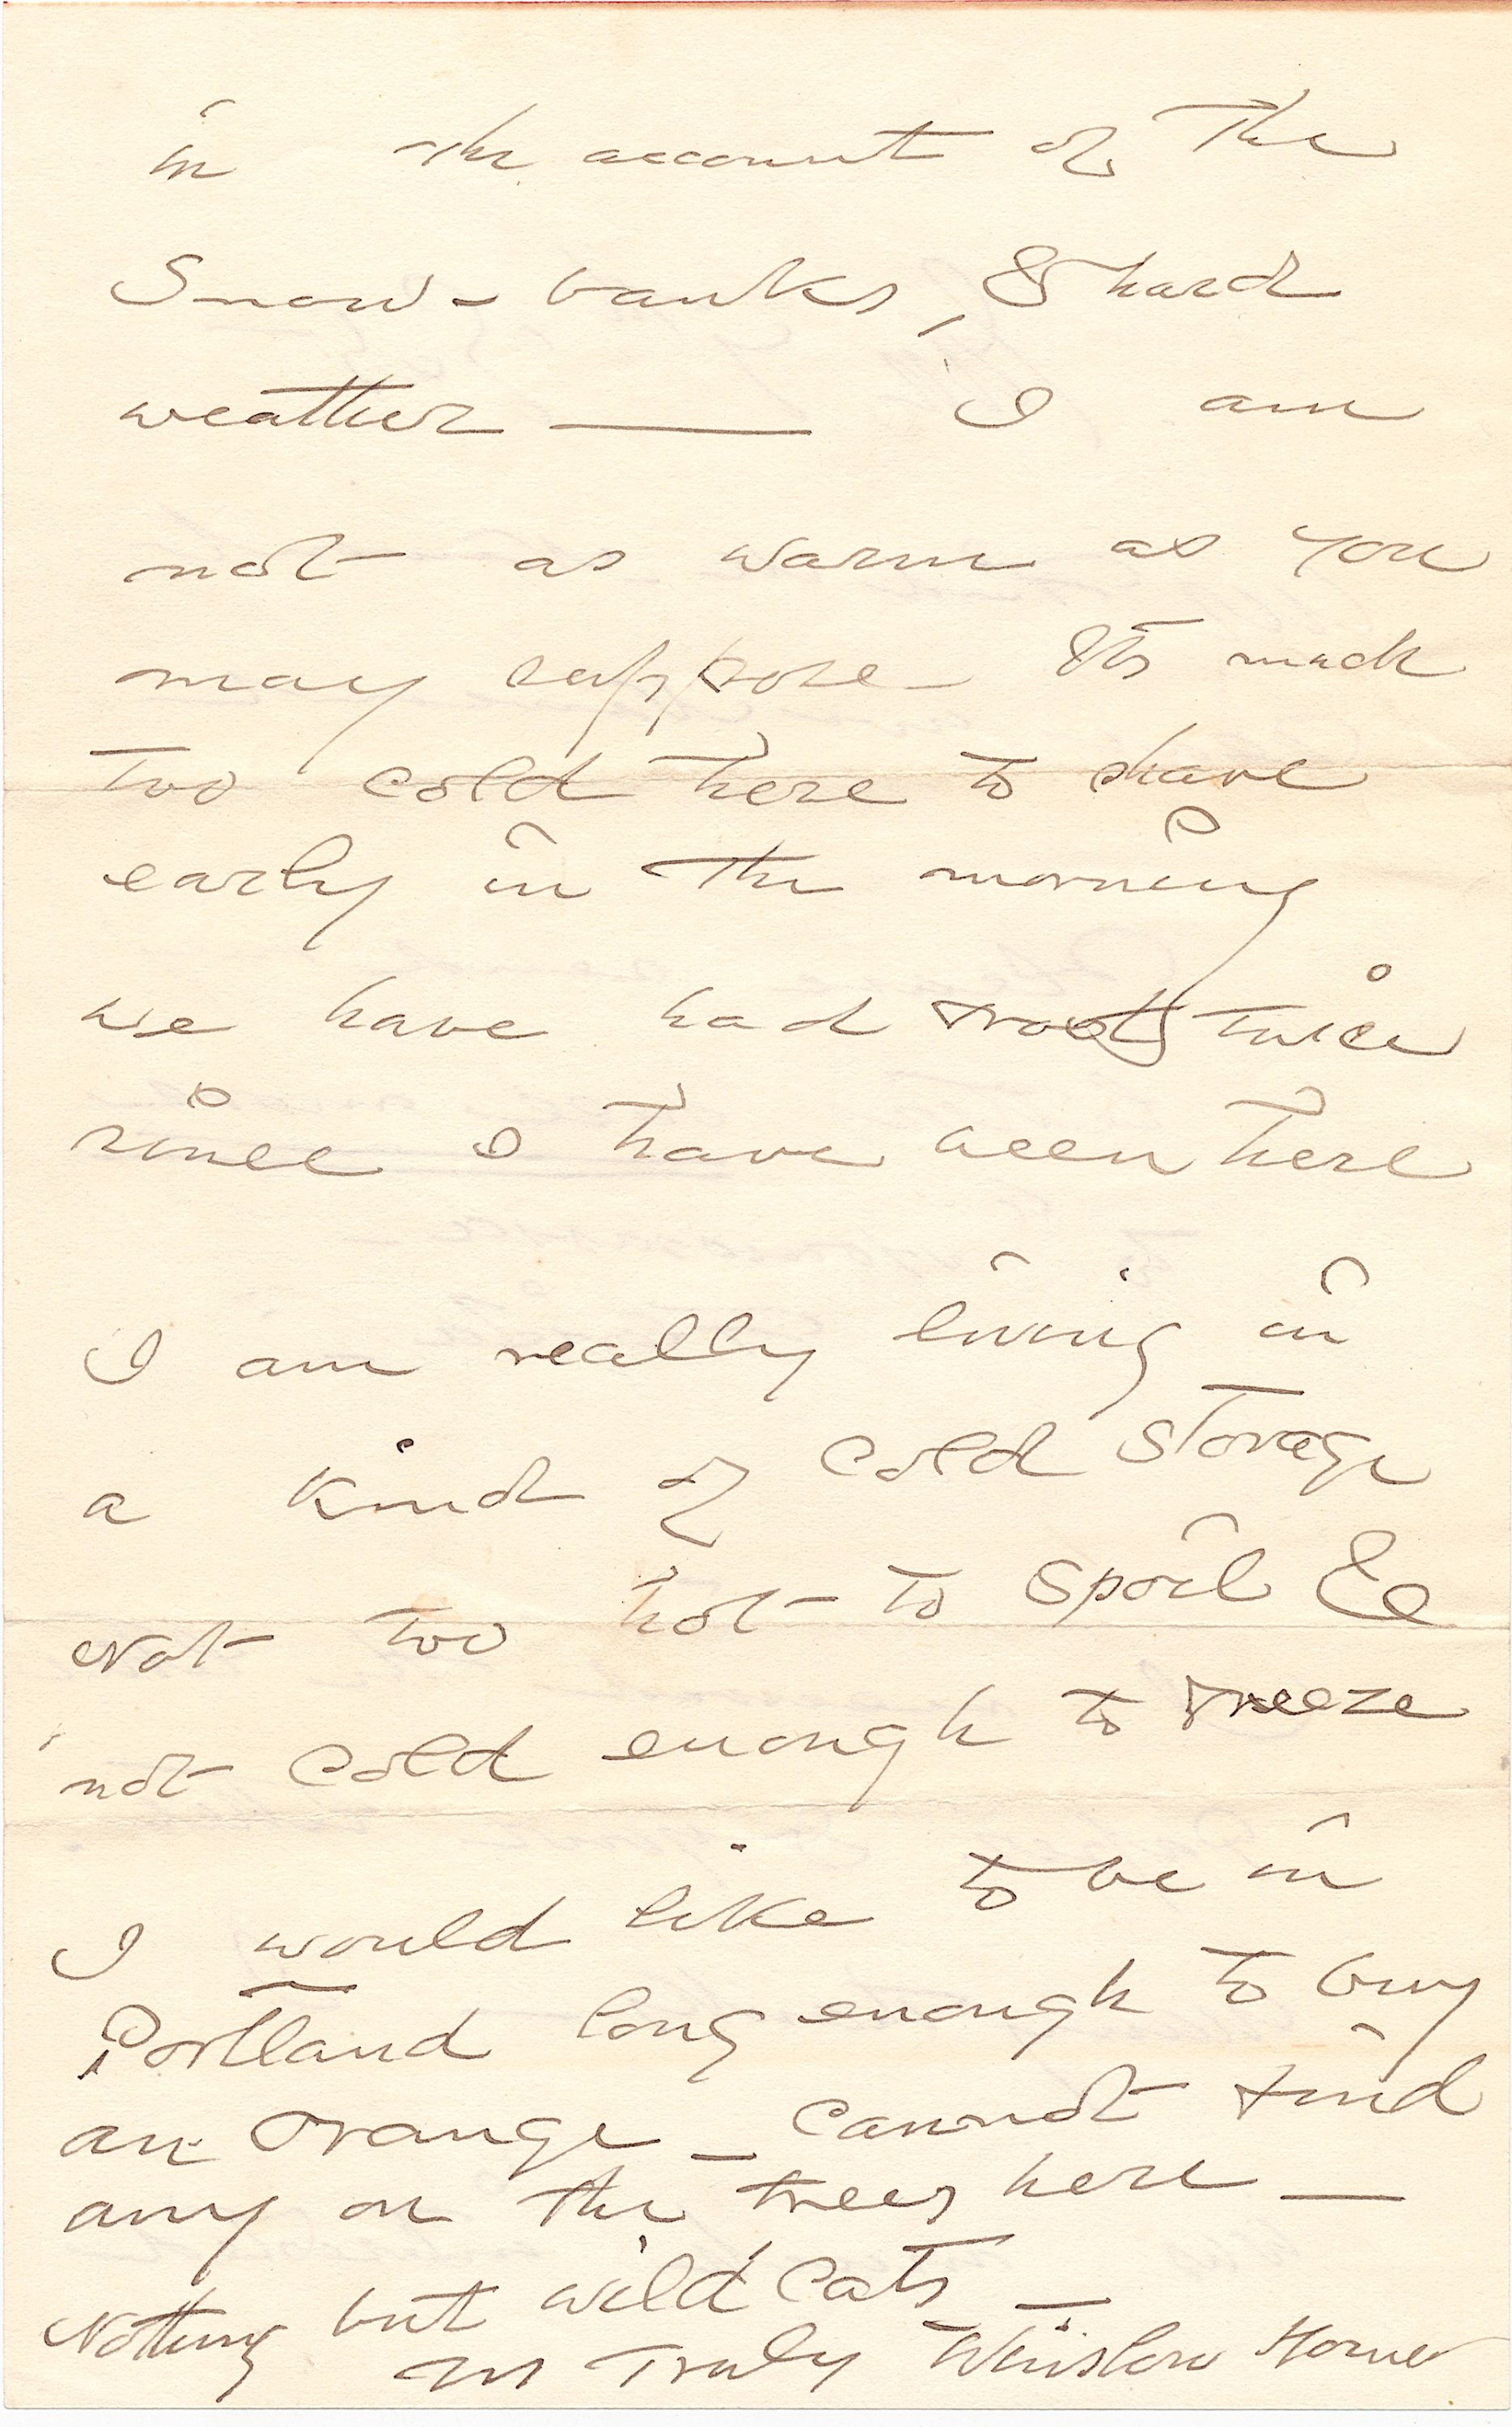 in the account of the
Snow-banks, & hard
weather — I am
not as warm as you
may suppose — Its much
too cold here to shave
early in the morning
we have had frosts twice
since I have been here
I am really living in
a kind of cold storage
Not too hot to spoil &
not cold enough to freeze
I would like to be in
Portland long enough to buy
an orange — cannot find
any on the trees here —
Nothing but wild cats —
Yrs Truly Winslow Homer